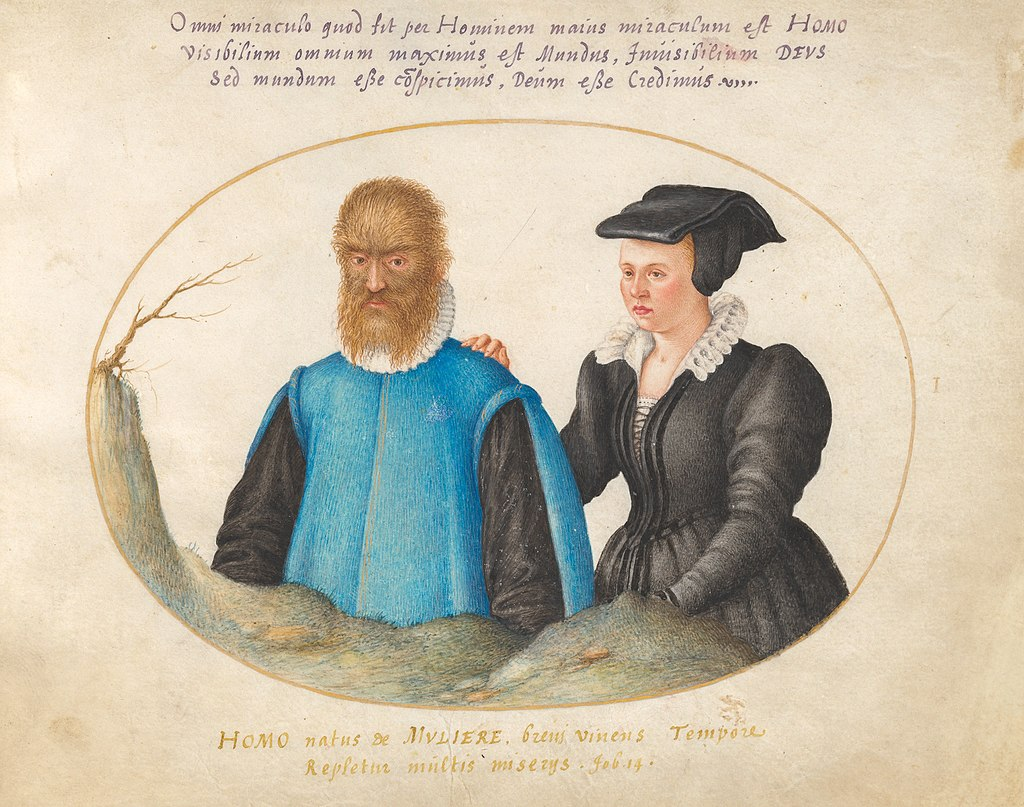 Omni miraculo quod fit per Hominem maius miraculum est HOMO
Visibilium omnium maximus est Mundus, Invisibilium DEVS
Sed mundum esse cõspicimus, Deum esse Credimus
I
HOMO natus de MVLIERE, breui viuens Tempore
Repletur multis miserijs. Job.14.